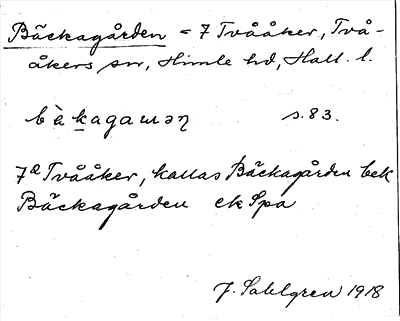 Bäckagården = 7 Tvååker, Två-
åkers sn, Himle hd, Hall. l.
s. 83.
7ᵃ Tvååker, kallas Bäckagården bek
Bäckagården ek Spa
J. Sahlgren 1918